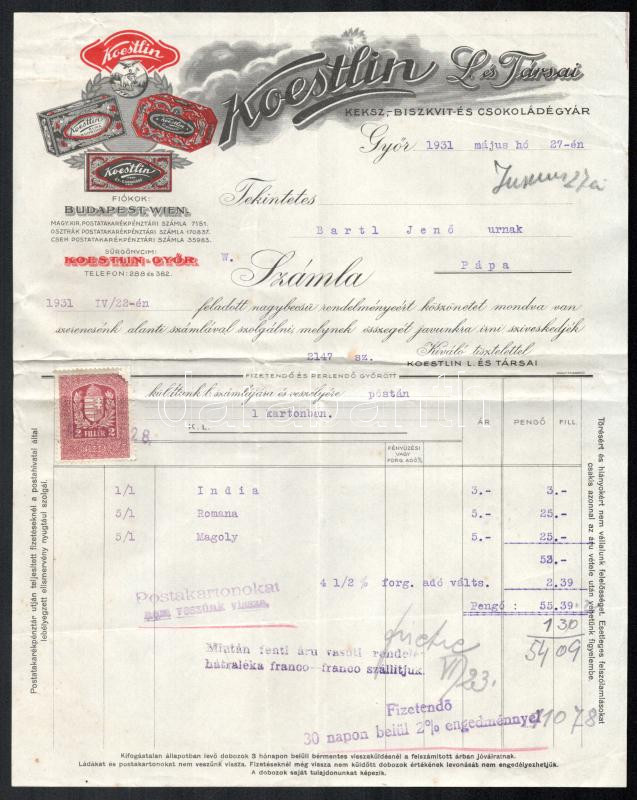 Koestlin
Koestlin L. és Társai
KEKSZ,-BISZKVIT-ÉS CSOKOLÁDÉGYÁR
Győr 1931 május hó 27-én
Koestlin
Koestlin
Koestlin
FIÓKOK:
BUDAPEST. WIEN.
MAGY. KIR. POSTATAKARÉKPÉNZTÁRI SZÁMLA 7151.
OSZTRÁK POSTATAKARÉKPÉNZTÁRI SZÁMLA 170837.
CSEH POSTATAKARÉKPÉNZTÁRI SZÁMLA 35983.
SÜRGÖNYCIM:
KOESTLIN-GYŐR
TELEFON: 288 és 382.
Tekintetes
Bartl Jenő urnak
W. Pápa
Számla
1931 IV/22-én feladott nagybecsü rendelményeért köszönetet mondva van
szerencsénk alanti számlával szolgálni, melynek összegét javunkra irni sziveskedjék
2147 sz. Kiváló tisztelettel
KOESTLIN L. ÉS TÁRSAI
FIZETENDŐ ÉS PERLENDŐ GYŐRÖTT
küldttünk t. számlájára és veszélyére postán
1 kartonban.
K. L.
2 FILLÉR 2
28.
FÉNYÜZÉSI VAGY FORG. ADÓ %
ÁR PENGŐ FILL.
1/1 India 3.- 3.-
5/1 Romana 5.- 25.-
5/1 Magoly 5.- 25.-
53.-
4 1/2 % forg. adó válts. 2.39
Pengő : 55.39
1 30
54 09
Postakartonokat
nem veszünk vissza.
Miután fenti áru vasuti rendelet
hátraléka franco-franco szállitjuk.
VI/23.
Fizetendő
30 napon belül 2% engedménnyel
Postatakarékpénztár utján teljesitett fizetéseknél a postahivatal által
lebélyegzett elismervény nyugtául szolgál.
Törésért és hiányokért nem vállalunk felelősséget. Esetleges felszólamlásokat
csakis azonnal az áru vétele után vehetünk figyelembe.
Kifogástalan állapotban levő dobozok 3 hónapon belüli bérmentes visszaküldésnél a felszámitott árban jóváiratnak.
Ládákat és postakartonokat nem veszünk vissza. Fizetéseknél még vissza nem küldött dobozok értékének levonását nem engedélyezhetjük.
A dobozok saját tulajdonunkat képezik.